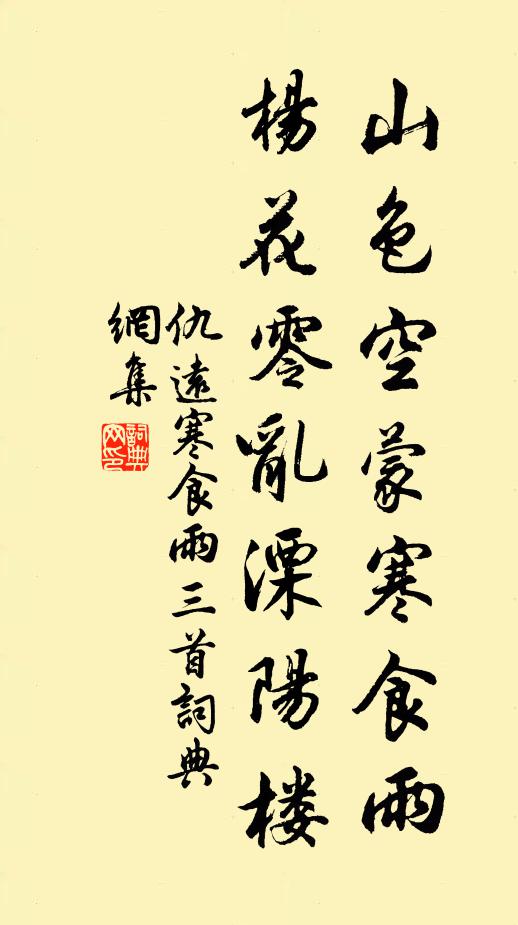 山色空蒙寒食雨
楊花零亂溧陽楼
仇遠寒食雨三首詞典
網集
詞典
网印